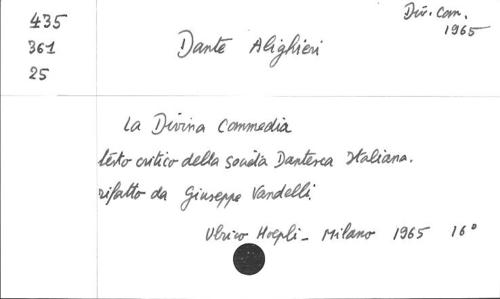 435
361
25
Div. Com.
1965
Dante Alighieri
La Divina Commedia
testo critico della Società Dantesca Italiana.
rifatto da Giuseppe Vandelli.
Ulrico Hoepli - Milano 1965 16°